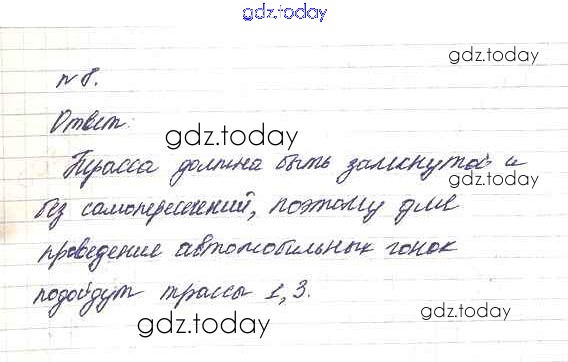 gdz.today
gdz.today
№ 8.
Ответ:
gdz.today
Трасса должна быть замкнутой и
gdz.today
без самопересечений, поэтому для
проведение автомобильных гонок
подойдут трассы 1,3.
gdz.today
gdz.today